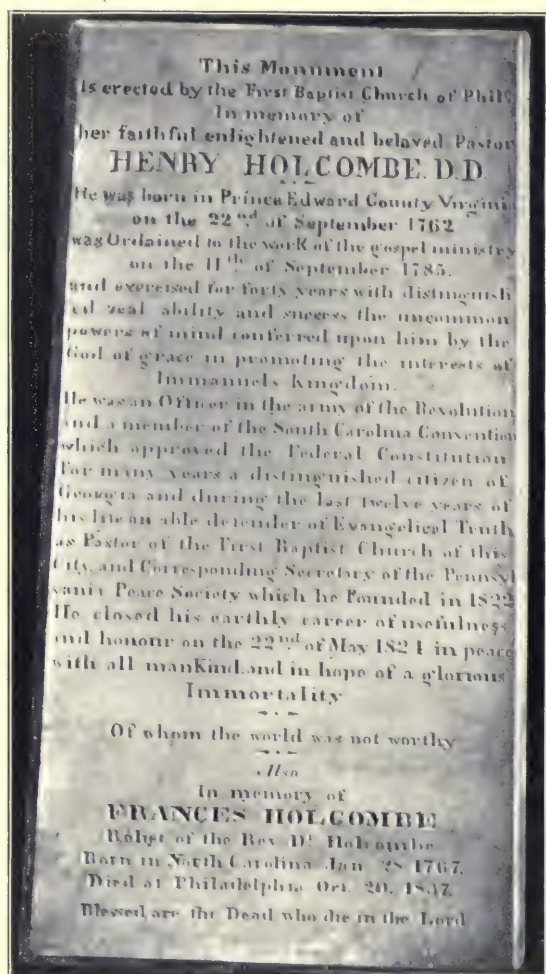 This Monument
is erected by the First Baptist Church of Phila
In memory of
her faithful enlightened and beloved Pastor
HENRY HOLCOMBE. D.D.
He was born in Prince Edward County Virginia
on the 22nd of September 1762
was Ordained to the work of the gospel ministry
on the 11th of September 1785.
and exercised for forty years with distinguish
ed zeal ability and success the uncommon
powers of mind conferred upon him by the
God of grace in promoting the interests of
Immanuels Kingdom.
He was an Officer in the army of the Revolution
and a member of the South Carolina Convention
which approved the Federal Constitution
For many years a distinguished citizen of
Georgia and during the last twelve years of
his life an able defender of Evangelical Truth
as Pastor of the First Baptist Church of this
City, and Corresponding Secretary of the Pennsyl
vania Peace Society which he Founded in 1822
He closed his earthly career of usefulness
and honour on the 22nd of May 1824 in peace
with all manKind, and in hope of a glorious
Immortality
Of whom the world was not worthy
Also
In memory of
FRANCES HOLCOMBE
Relict of the Rev. Dr. Holcombe
Born in North Carolina Jan. 28 1767.
Died at Philadelphia Oct. 20, 1837.
Blessed are the Dead who die in the Lord